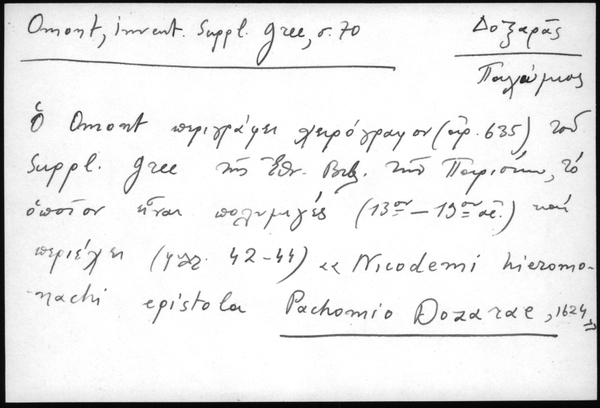 Omont, invent. Suppl. Grec, σ. 70
Δοξαρᾶς
Παχώμιος
Ὁ Omont περιγράφει χειρόγραφον (ἀρ. 635) τοῦ
Suppl. Grec τῆς Ἐθν. Βιβ. τῶν Παρισίων, τό
ὁποῖον εἶναι πολυμιγές (13ον – 19ον αἰ.) καί
περιέχει (φυλ. 42-44) «Nicodemi hieromo-
nachi epistola Pachomio Doxarae, 1624»